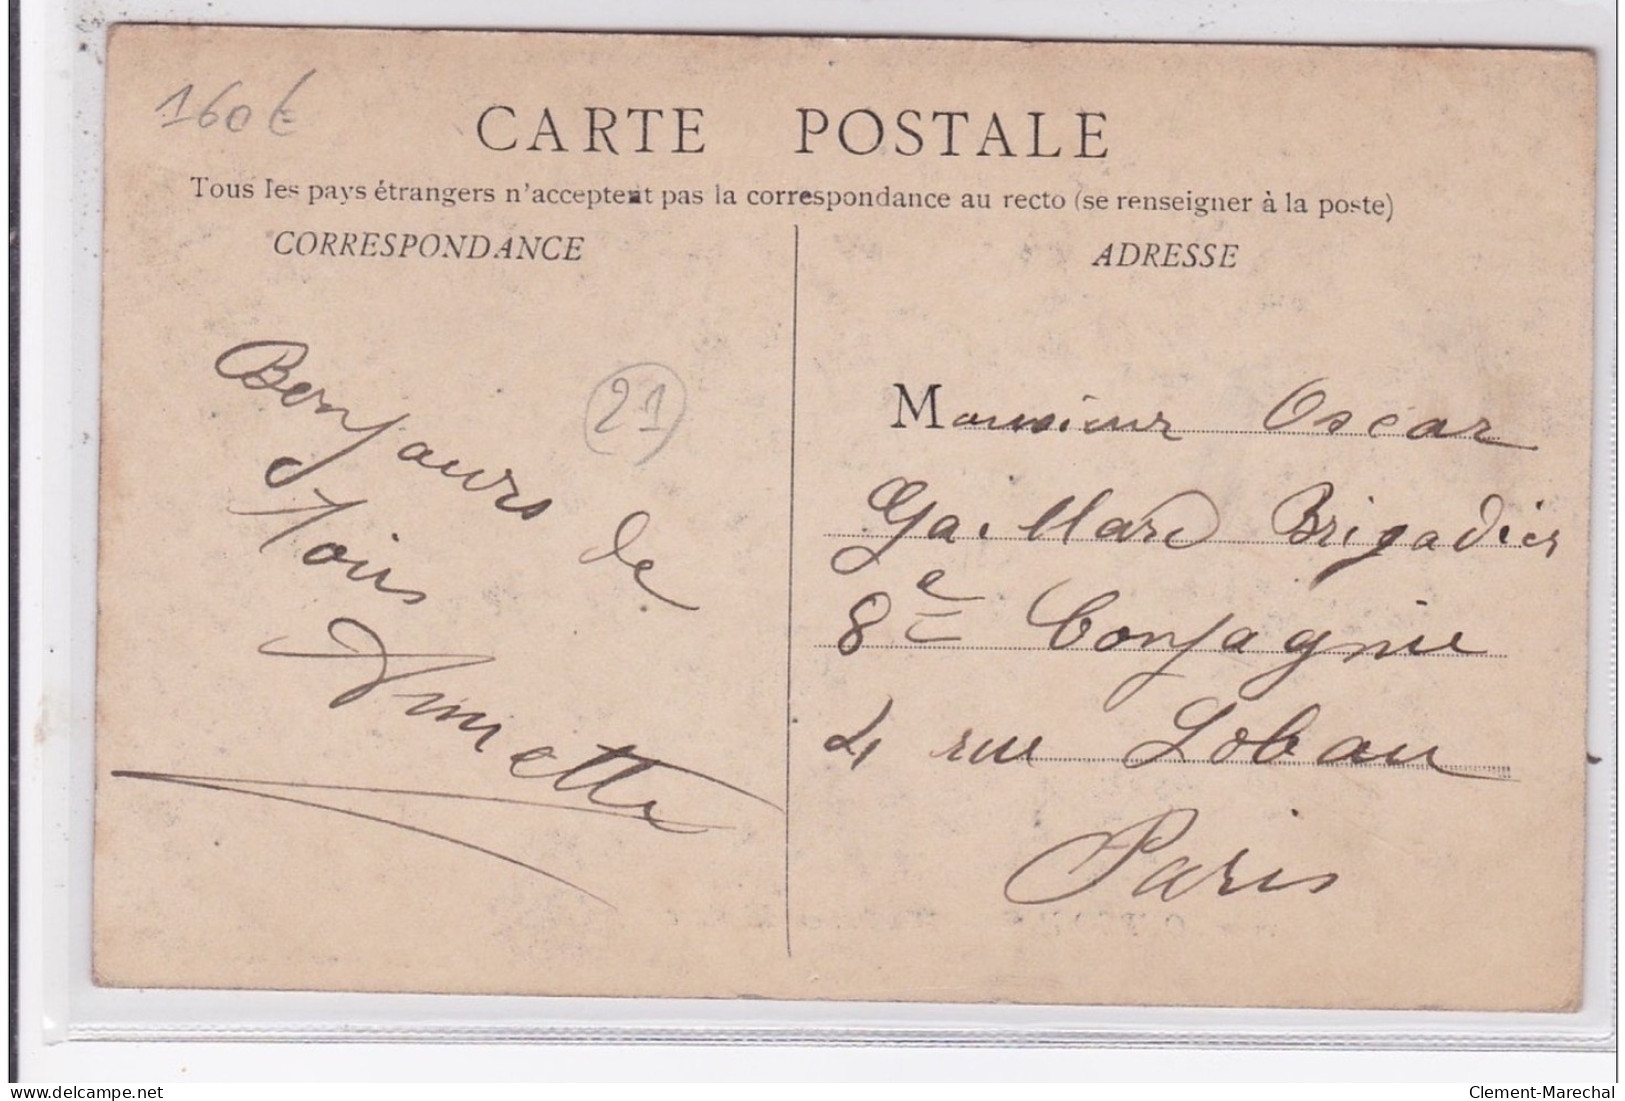 160€
CARTE POSTALE
Tous les pays étrangers n'acceptent pas la correspondance au recto (se renseigner à la poste)
CORRESPONDANCE
ADRESSE
21
Bonjours de
Monsieur Oscar
Gaillard Brigadier
8e Compagnie
4 rue Lobau
Paris
delcampe.net
Clement-Marechal